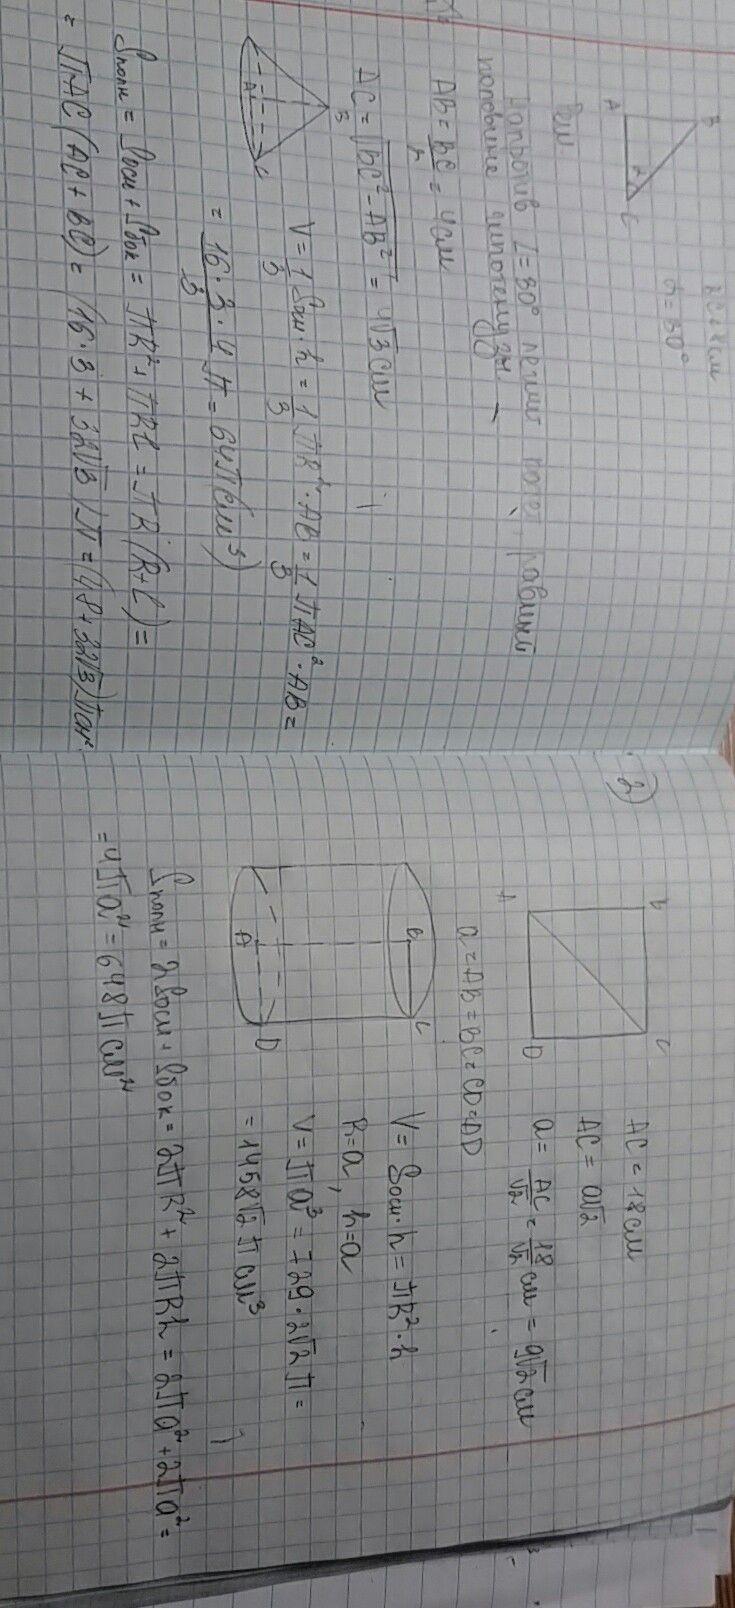 B
A
C
BC = 8 см
α = 30°
Реш
Напротив ∠ = 30° лежит катет, равный
половине гипотенузы.
AB = BC/2 = 4 см
AC = √(BC² - AB²) = 4√3 см
B
A
C
V = 1/3 Sосн · h = 1/3 πR² · AB = 1/3 πAC² · AB =
= 16 · 3 · 4/3 π = 64π (см³)
Sполн = Sосн + Sбок = πR² + πRl = πR(R + l) =
= πAC(AC + BC) = (16 · 3 + 32√3)π = (48 + 32√3)π см²
2)
B
C
A
D
AC = 18 см
AC = a√2
a = AC/√2 = 18/√2 см = 9√2 см
a = AB = BC = CD = AD
B
C
A
D
V = Sосн · h = πR² · h
R = a, h = a
V = πa³ = 729 · 2√2 π =
= 1458√2 π см³
Sполн = 2Sосн + Sбок = 2πR² + 2πRh = 2πa² + 2πa² =
= 4πa² = 648π см²